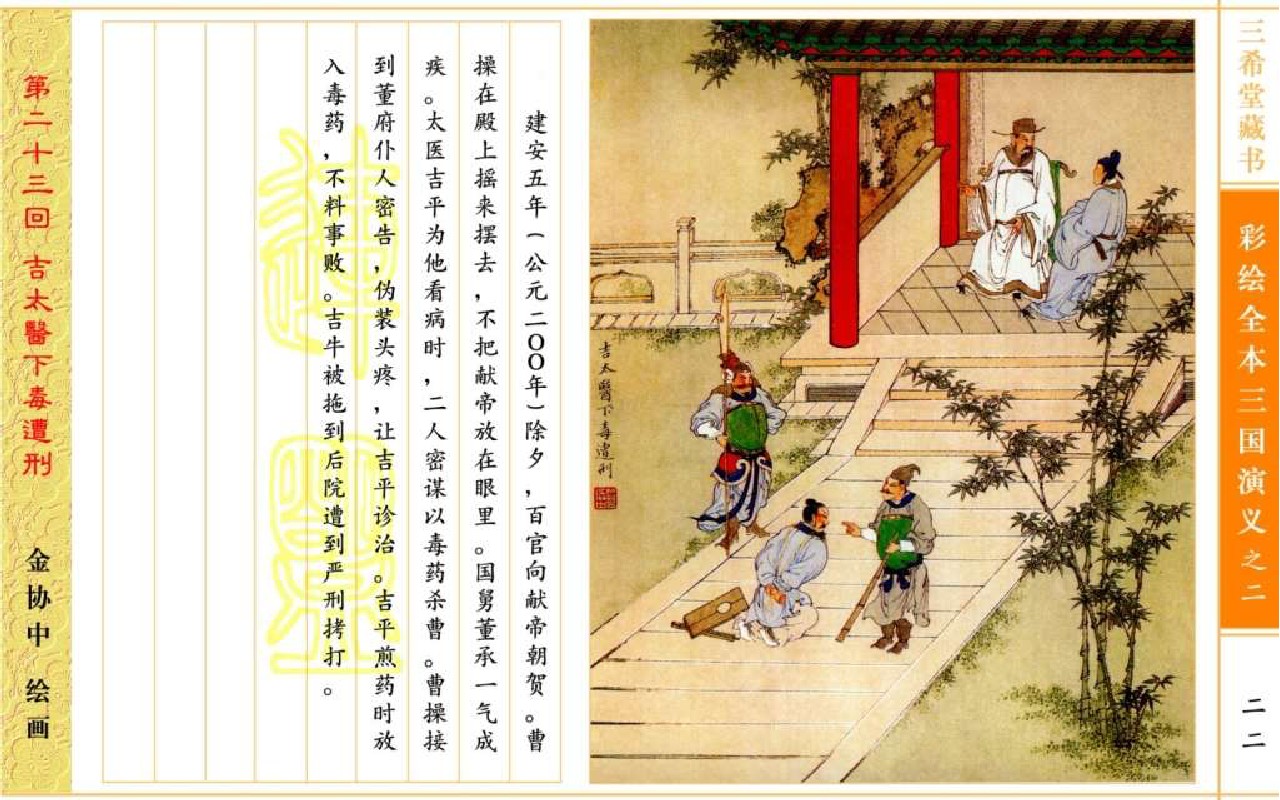 三希堂藏书
彩绘全本三国演义之二
二二
吉太醫下毒遭刑
建安五年（公元二〇〇年）除夕，百官向献帝朝贺。曹
操在殿上摇来摆去，不把献帝放在眼里。国舅董承一气成
疾。太医吉平为他看病时，二人密谋以毒药杀曹。曹操接
到董府仆人密告，伪装头疼，让吉平诊治。吉平煎药时放
入毒药，不料事败。吉牛被拖到后院遭到严刑拷打。
第二十三回 吉太醫下毒遭刑 金协中 绘画